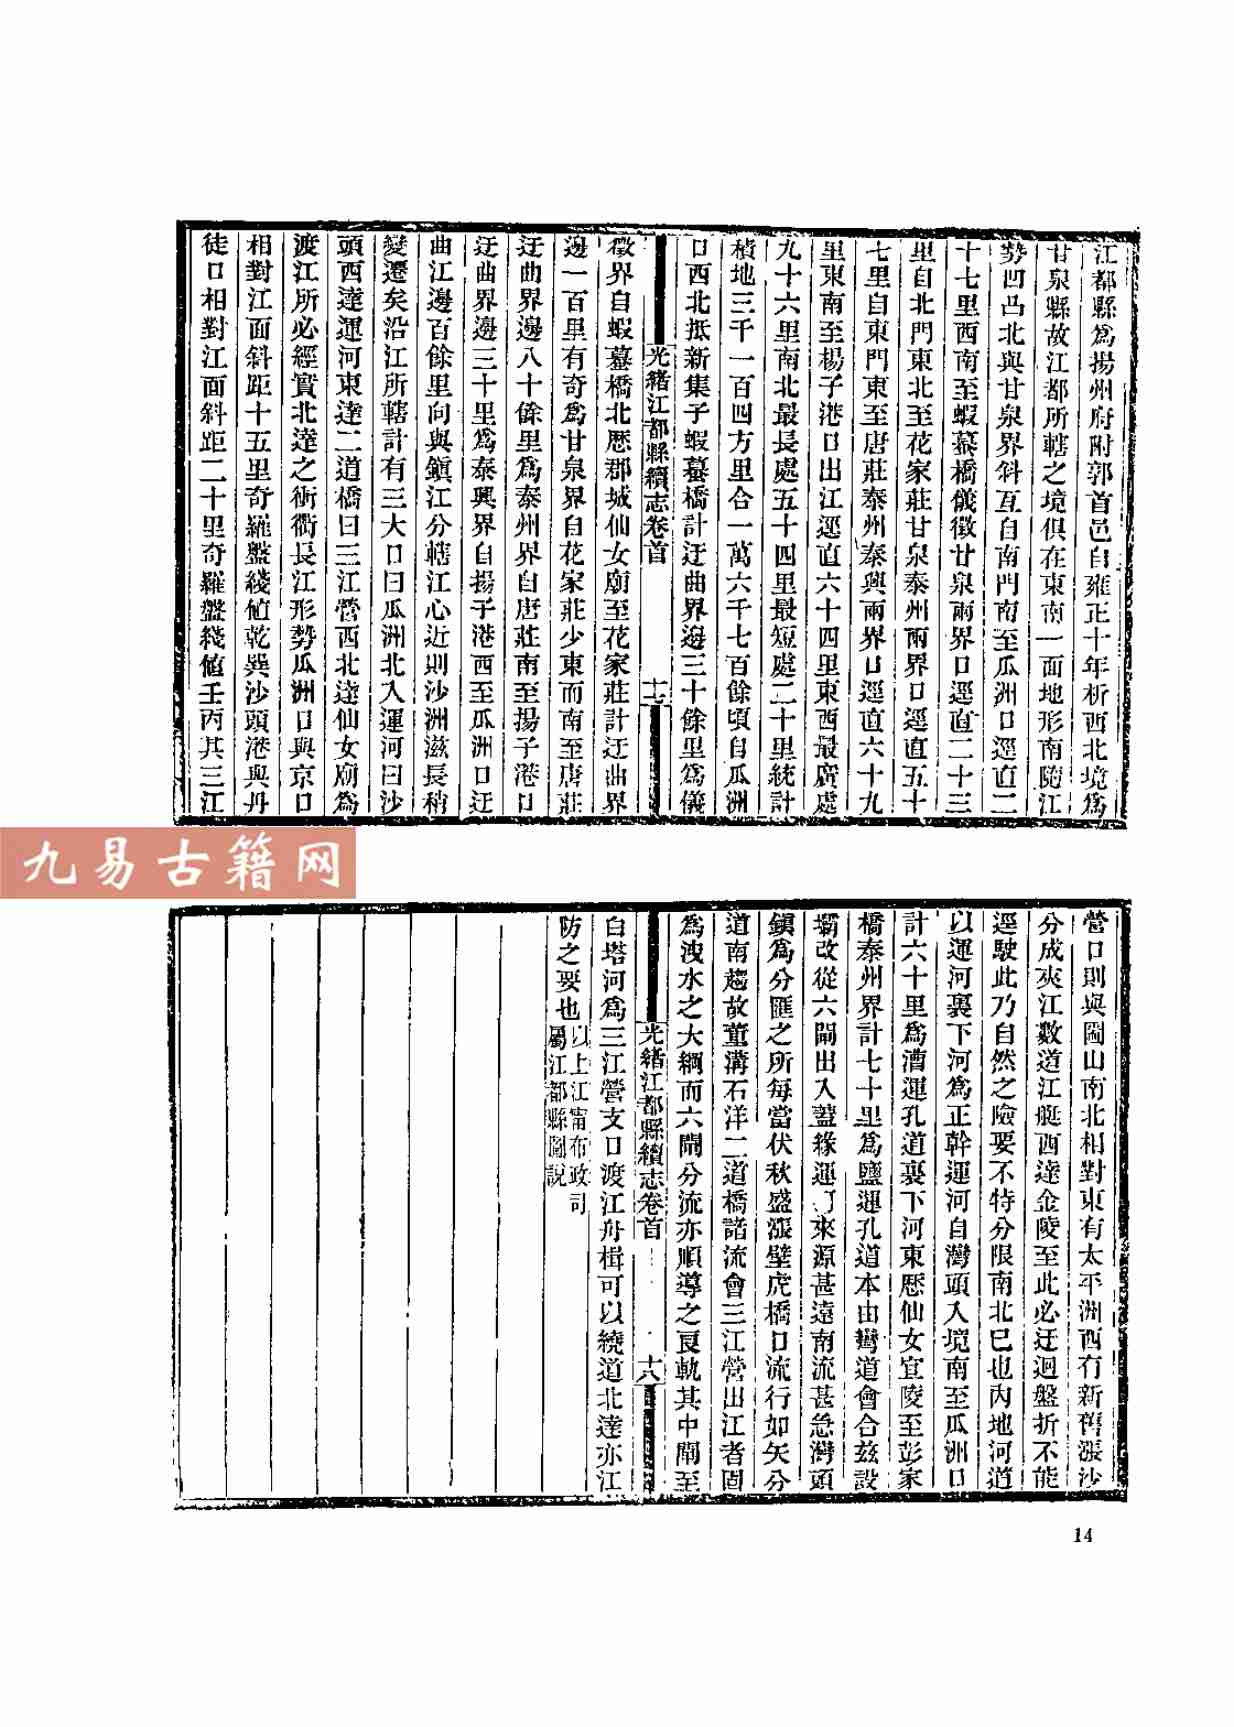 江都縣爲揚州府附郭首邑自雍正十年析西北境爲
甘泉縣故江都所轄之境俱在東南一面地形南隨江
勢凹凸北與甘泉界斜互自南門南至瓜洲口逕直二
十七里西南至蝦蟇橋儀徵甘泉兩界口逕直二十三
里自北門東北至花家莊甘泉泰州兩界口逕直五十
七里自東門東至唐莊泰州泰興兩界口逕直六十九
里東南至楊子港口出江逕直六十四里東西最廣處
九十六里南北最長處五十四里最短處二十里統計
積地三千一百四方里合一萬六千七百餘頃自瓜洲
口西北抵新集子蝦蟇橋計迂曲界邊三十餘里爲儀
光緒江都縣續志卷首 十七
徵界自蝦蟇橋北歷郡城仙女廟至花家莊計迂曲界
邊一百里有奇爲甘泉界自花家莊少東而南至唐莊
迂曲界邊八十餘里爲泰州界自唐莊南至揚子港口
迂曲界邊三十里爲泰興界自揚子港西至瓜洲口迂
曲江邊百餘里向與鎭江分轄江心近則沙洲滋長稍
變遷矣沿江所轄計有三大口曰瓜洲北入運河曰沙
頭西達運河東達二道橋曰三江營西北達仙女廟爲
渡江所必經實北達之衝衢長江形勢瓜洲口與京口
相對江面斜距十五里奇羅盤綫値乾巽沙頭港與丹
徒口相對江面斜距二十里奇羅盤綫値壬丙其三江
營口則與圌山南北相對東有太平洲西有新舊漲沙
分成夾江數道江艇西達金陵至此必迂迴盤折不能
逕駛此乃自然之險要不特分限南北已也內地河道
以運河裏下河爲正幹運河自灣頭入境南至瓜洲口
計六十里爲漕運孔道裏下河東歷仙女宜陵至彭家
橋泰州界計七十里爲鹽運孔道本由彎道會合茲設
壩改從六閘出入蓋緣運河來源甚遠南流甚急灣頭
鎭爲分匯之所每當伏秋盛漲壁虎橋口流行如矢分
道南趨故董溝石洋二道橋諸流會三江營出江者固
爲洩水之大綱而六閘分流亦順導之良軌其中閘至
光緒江都縣續志卷首 十八
白塔河爲三江營支口渡江舟楫可以繞道北達亦江
防之要也以上江甯布政司
屬江都縣圖說
14
九易古籍网